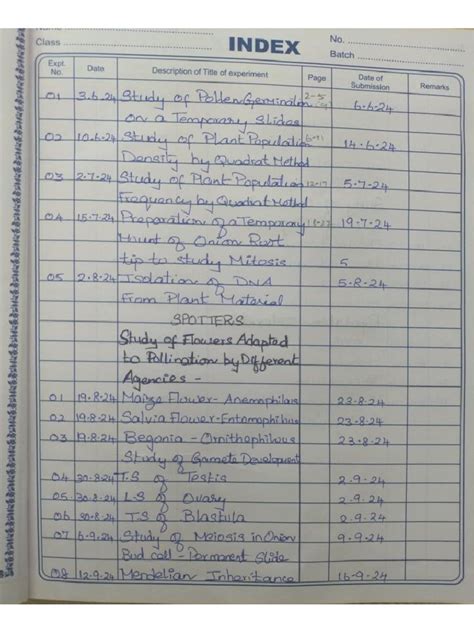 Class
INDEX
No.
Batch
Expt. No.
Date
Description of Title of experiment
Page
Date of Submission
Remarks
01 3.6.24 Study of Pollen Germination 2-5 6-6-24
on a Temporary Slides
02 10.6.24 Study of Plant Population 14-6-24
Density by Quadrat Method
03 2-7-24 Study of Plant Population 12-17 5-7-24
Frequency by Quadrat Method
04 15-7-24 Preparation of a Temporary 19-7-24
Mount of Onion Root
tip to study Mitosis 5
05 2-8-24 Isolation of DNA 5-8-24
From Plant Material
SPOTTERS
Study of Flowers Adapted
to Pollination by Different
Agencies -
01 19-8-24 Maize Flower- Anemophilous 23-8-24
02 19.8.24 Salvia Flower-Entomophilous 23-8-24
03 19.8.24 Begonia - Ornithophilous 23-8-24
Study of Gamete Development
04 30-8-24 T.S of Testis 2-9-24
05 30.8.24 L S of Ovary 2-9-24
06 30-8-24 T.S of Blastula 2-9-24
07 6-9-24 Study of Meiosis in Onion 9-9-24
Bud cell - Permanent Slide
08 12-9-24 Mendelian Inheritance 16-9-24